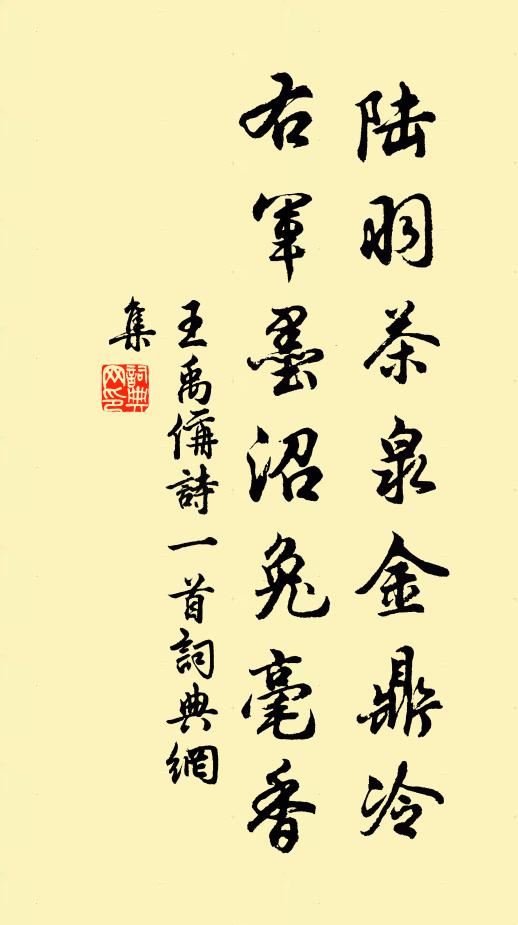 陆羽茶泉金鼎冷
右軍墨沼兔毫香
王禹偁詩一首詞典網
集
詞典
网印